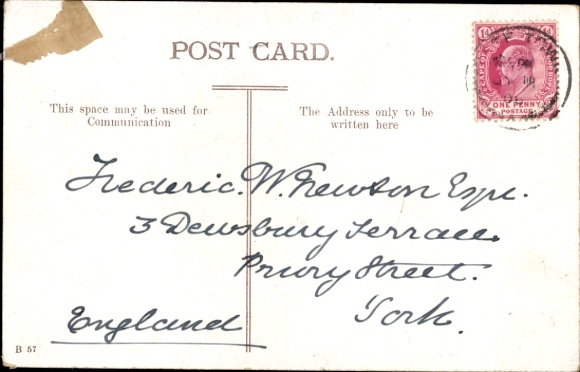 POST CARD.
This space may be used for
Communication
The Address only to be
written here
ONE PENNY
POSTAGE
Frederic. W. Newson Esqr.
3 Dewsbury Terrace
Priory Street.
York.
England
B 57